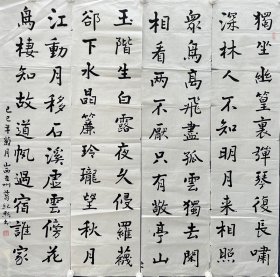 獨坐幽篁裏彈琴復長嘯
深林人不知明月来相照
眾鳥高飛盡孤雲獨去閒
相看兩不厭只有敬亭山
玉階生白露夜久侵羅襪
卻下水晶簾玲瓏望秋月
江動月移石溪虛雲傍花
鳥棲知故道帆過宿誰家